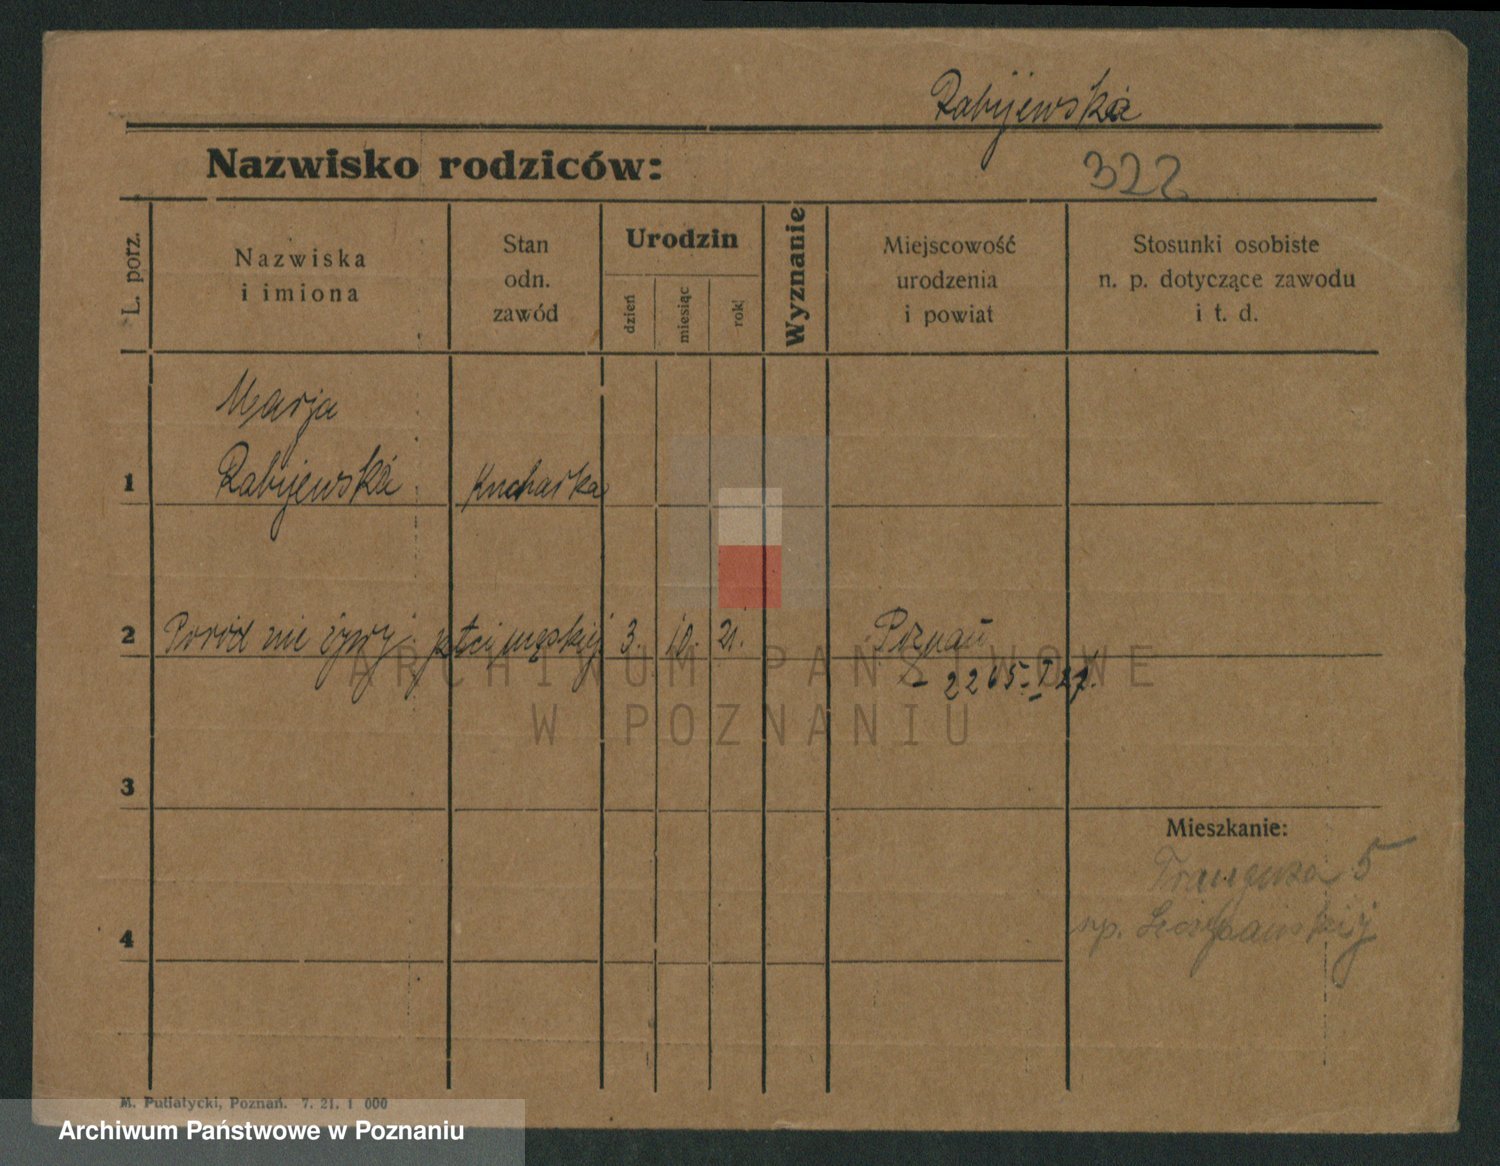 Rabijewska
Nazwisko rodziców:
322
L. porz.
Nazwiska
i imiona
Stan
odn.
zawód
Urodzin
dzień
miesiąc
rok
Wyznanie
Miejscowość
urodzenia
i powiat
Stosunki osobiste
n. p. dotyczące zawodu
i t. d.
1
Marja
Rabijewska
Kucharka
2
Poród nie żywy płci męskiej
3. 10. 21.
Poznań
2265
ARCHIWUM PAŃSTWOWE
W POZNANIU
3
Mieszkanie:
5
4
np.
M. Putiatycki, Poznań. 7. 21. 1 000
Archiwum Państwowe w Poznaniu